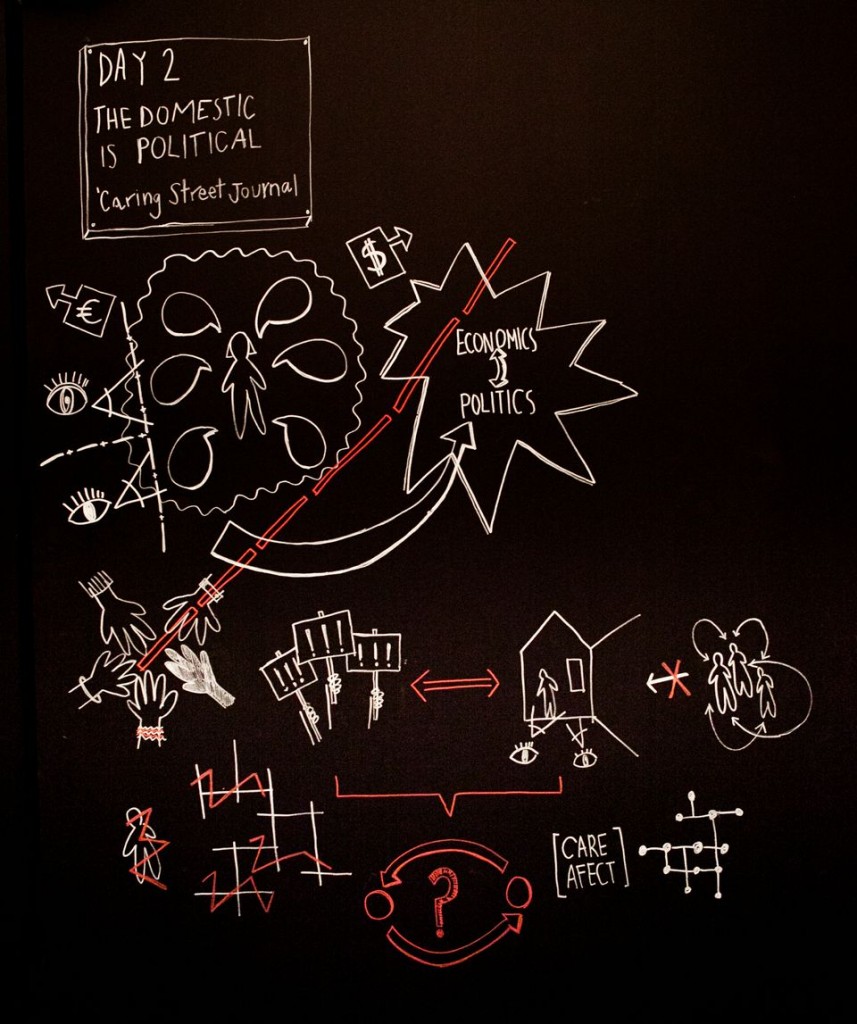 DAY 2
THE DOMESTIC
IS POLITICAL
'Caring Street Journal
$
€
ECONOMICS
POLITICS
!!
!!!
!!
?
[CARE
AFECT]